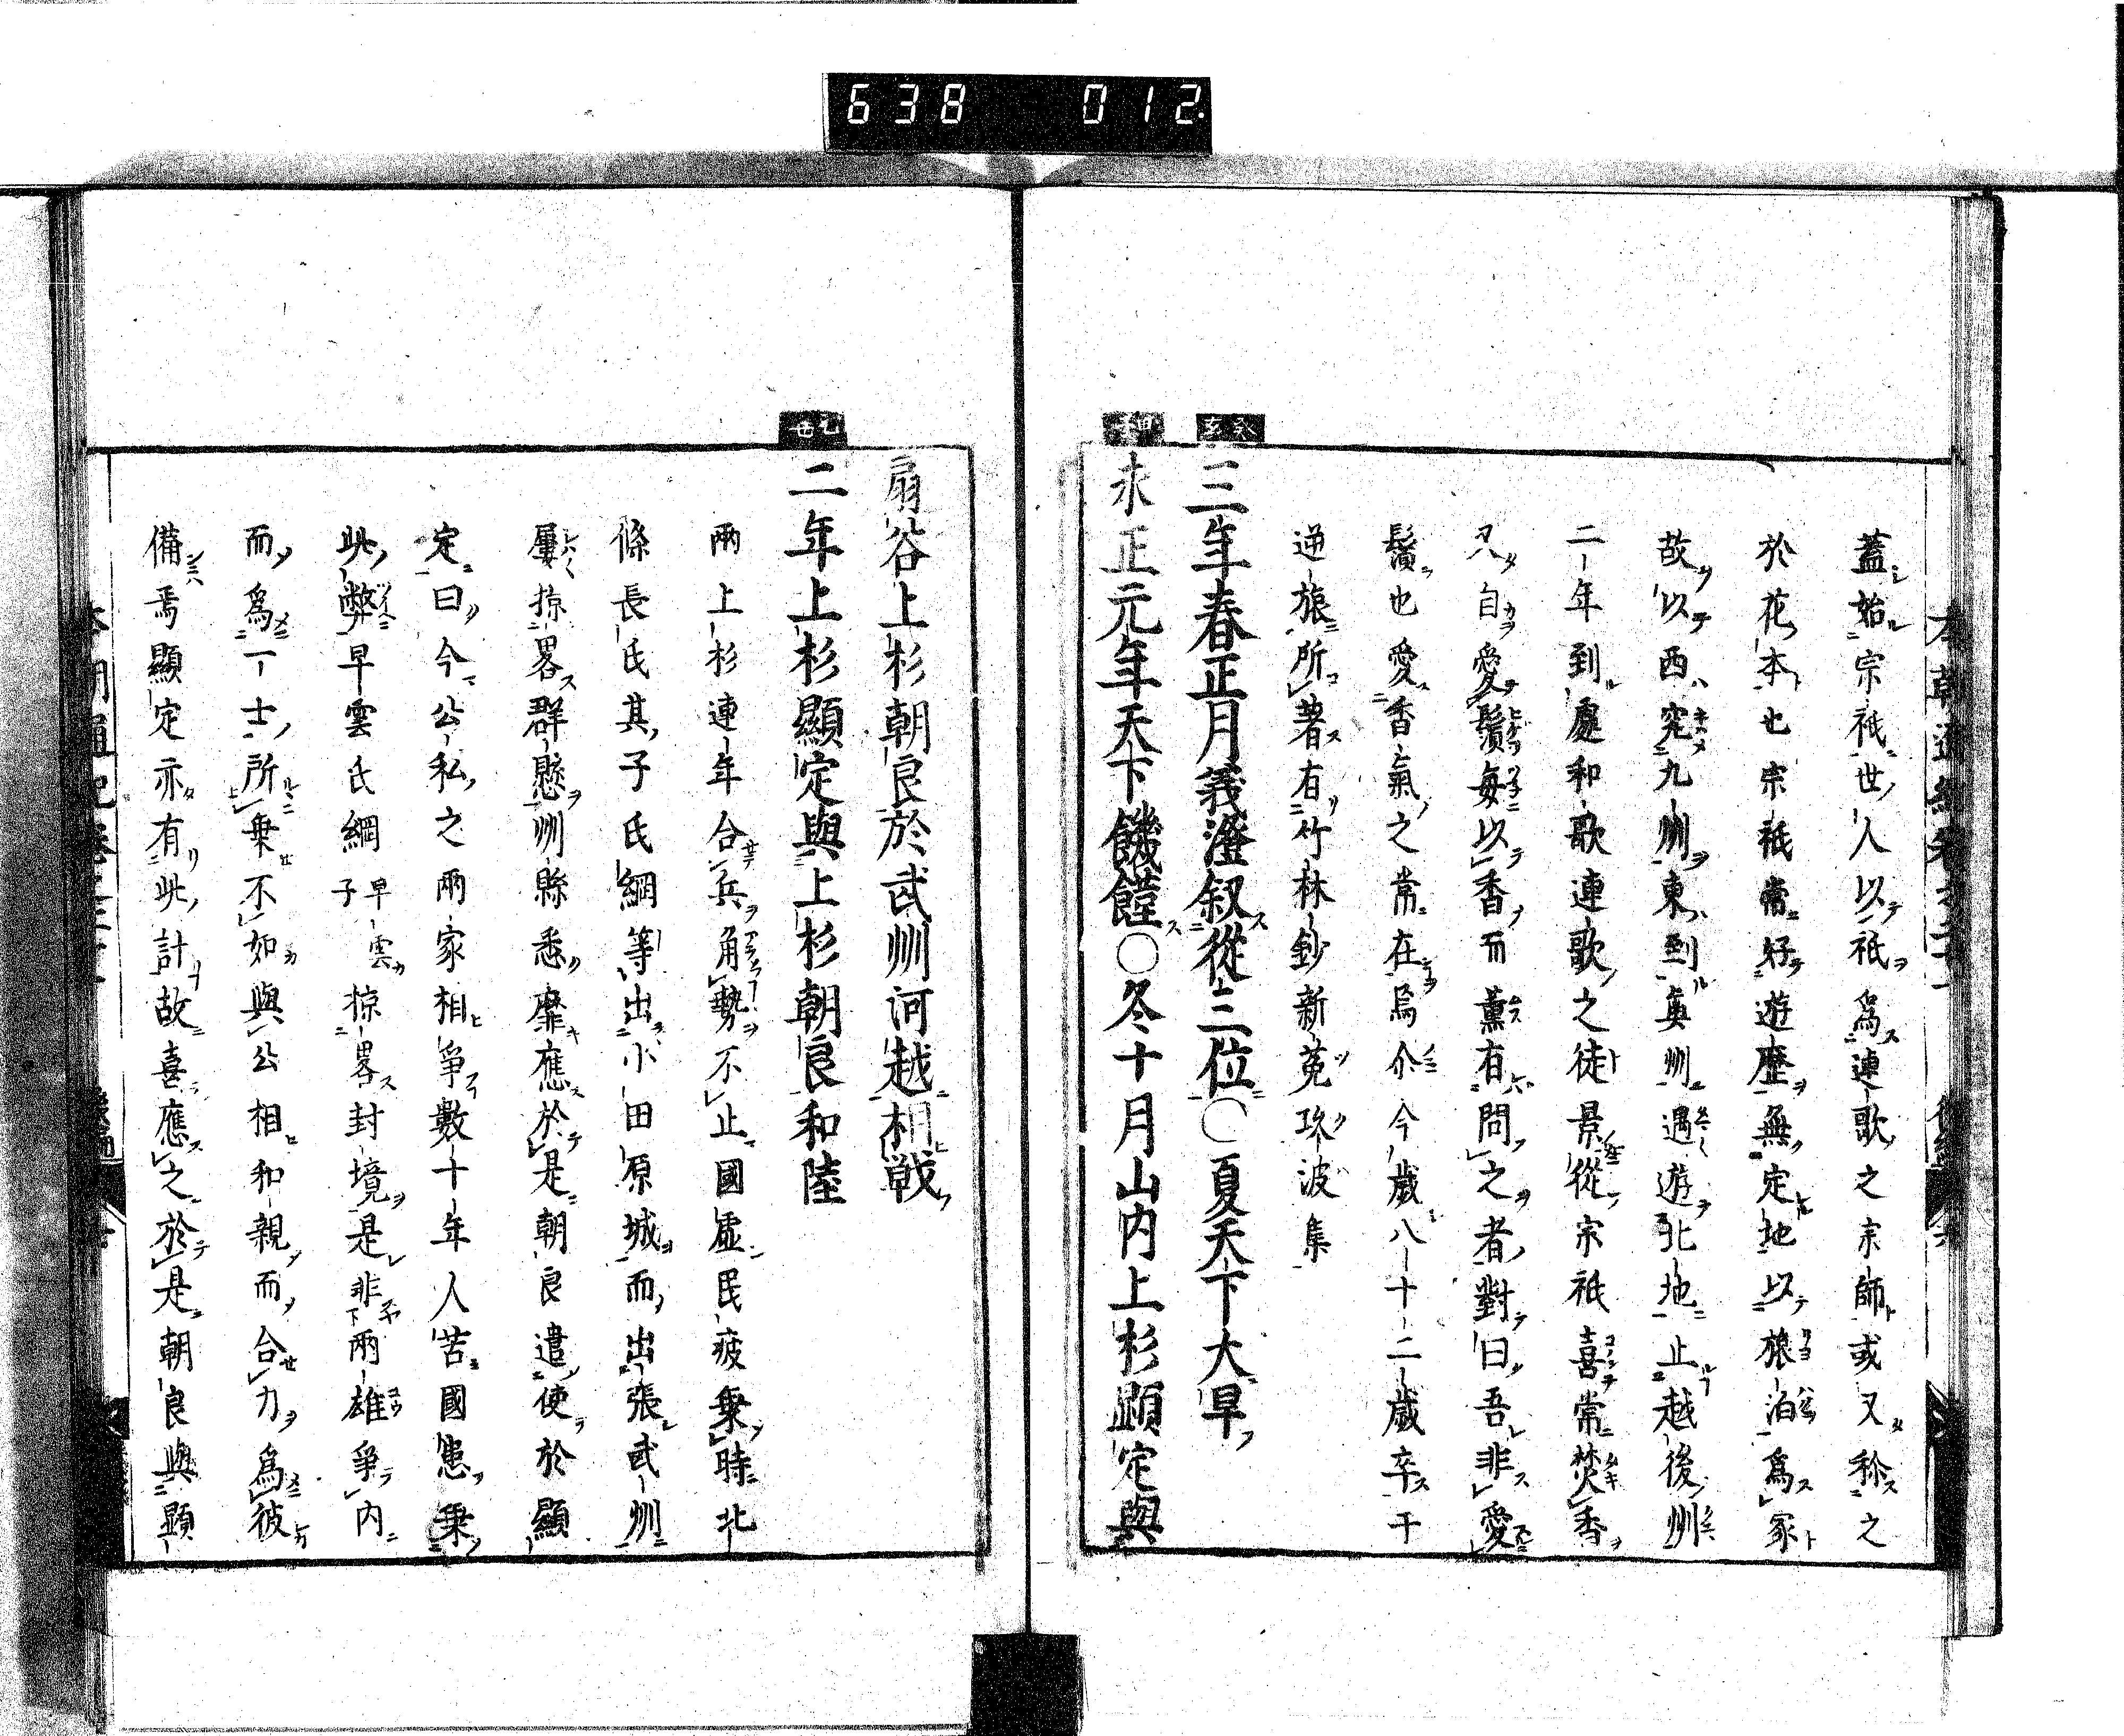 638 012
蓋始宗祇世人以祇爲連歌之宗師或又称之
於花本也宗祇常好遊歷無定地以旅泊爲家
故以西究九州東到奥州遇遊北地止越後州
二年到處和歌連歌之徒景從宗祇喜常焚香
又自愛鬚每以香而薰有問之者對曰吾非愛
鬚也愛香氣之常在焉尒今歲八十二歲卒于
逆旅所著有竹林鈔新菟玖波集
癸亥
三年春正月義澄叙從三位○夏天下大旱
甲子
永正元年天下饑饉○冬十月山内上杉顯定與
扇谷上杉朝良於武州河越相戰
乙丑
二年上杉顯定與上杉朝良和陸
兩上杉連年合兵角勢不止國虚民疲乗時北
條長氏其子氏綱等出小田原城而出張武州
屢掠畧群懸州縣悉靡應於是朝良遣使於顯
定曰今公私之兩家相爭數十年人苦國患乗
此弊早雲氏綱早雲子掠畧封境是非兩雄爭内
而爲一士所乗不如與公相和親而合力爲彼
備焉顯定亦有此計故喜應之於是朝良與顯